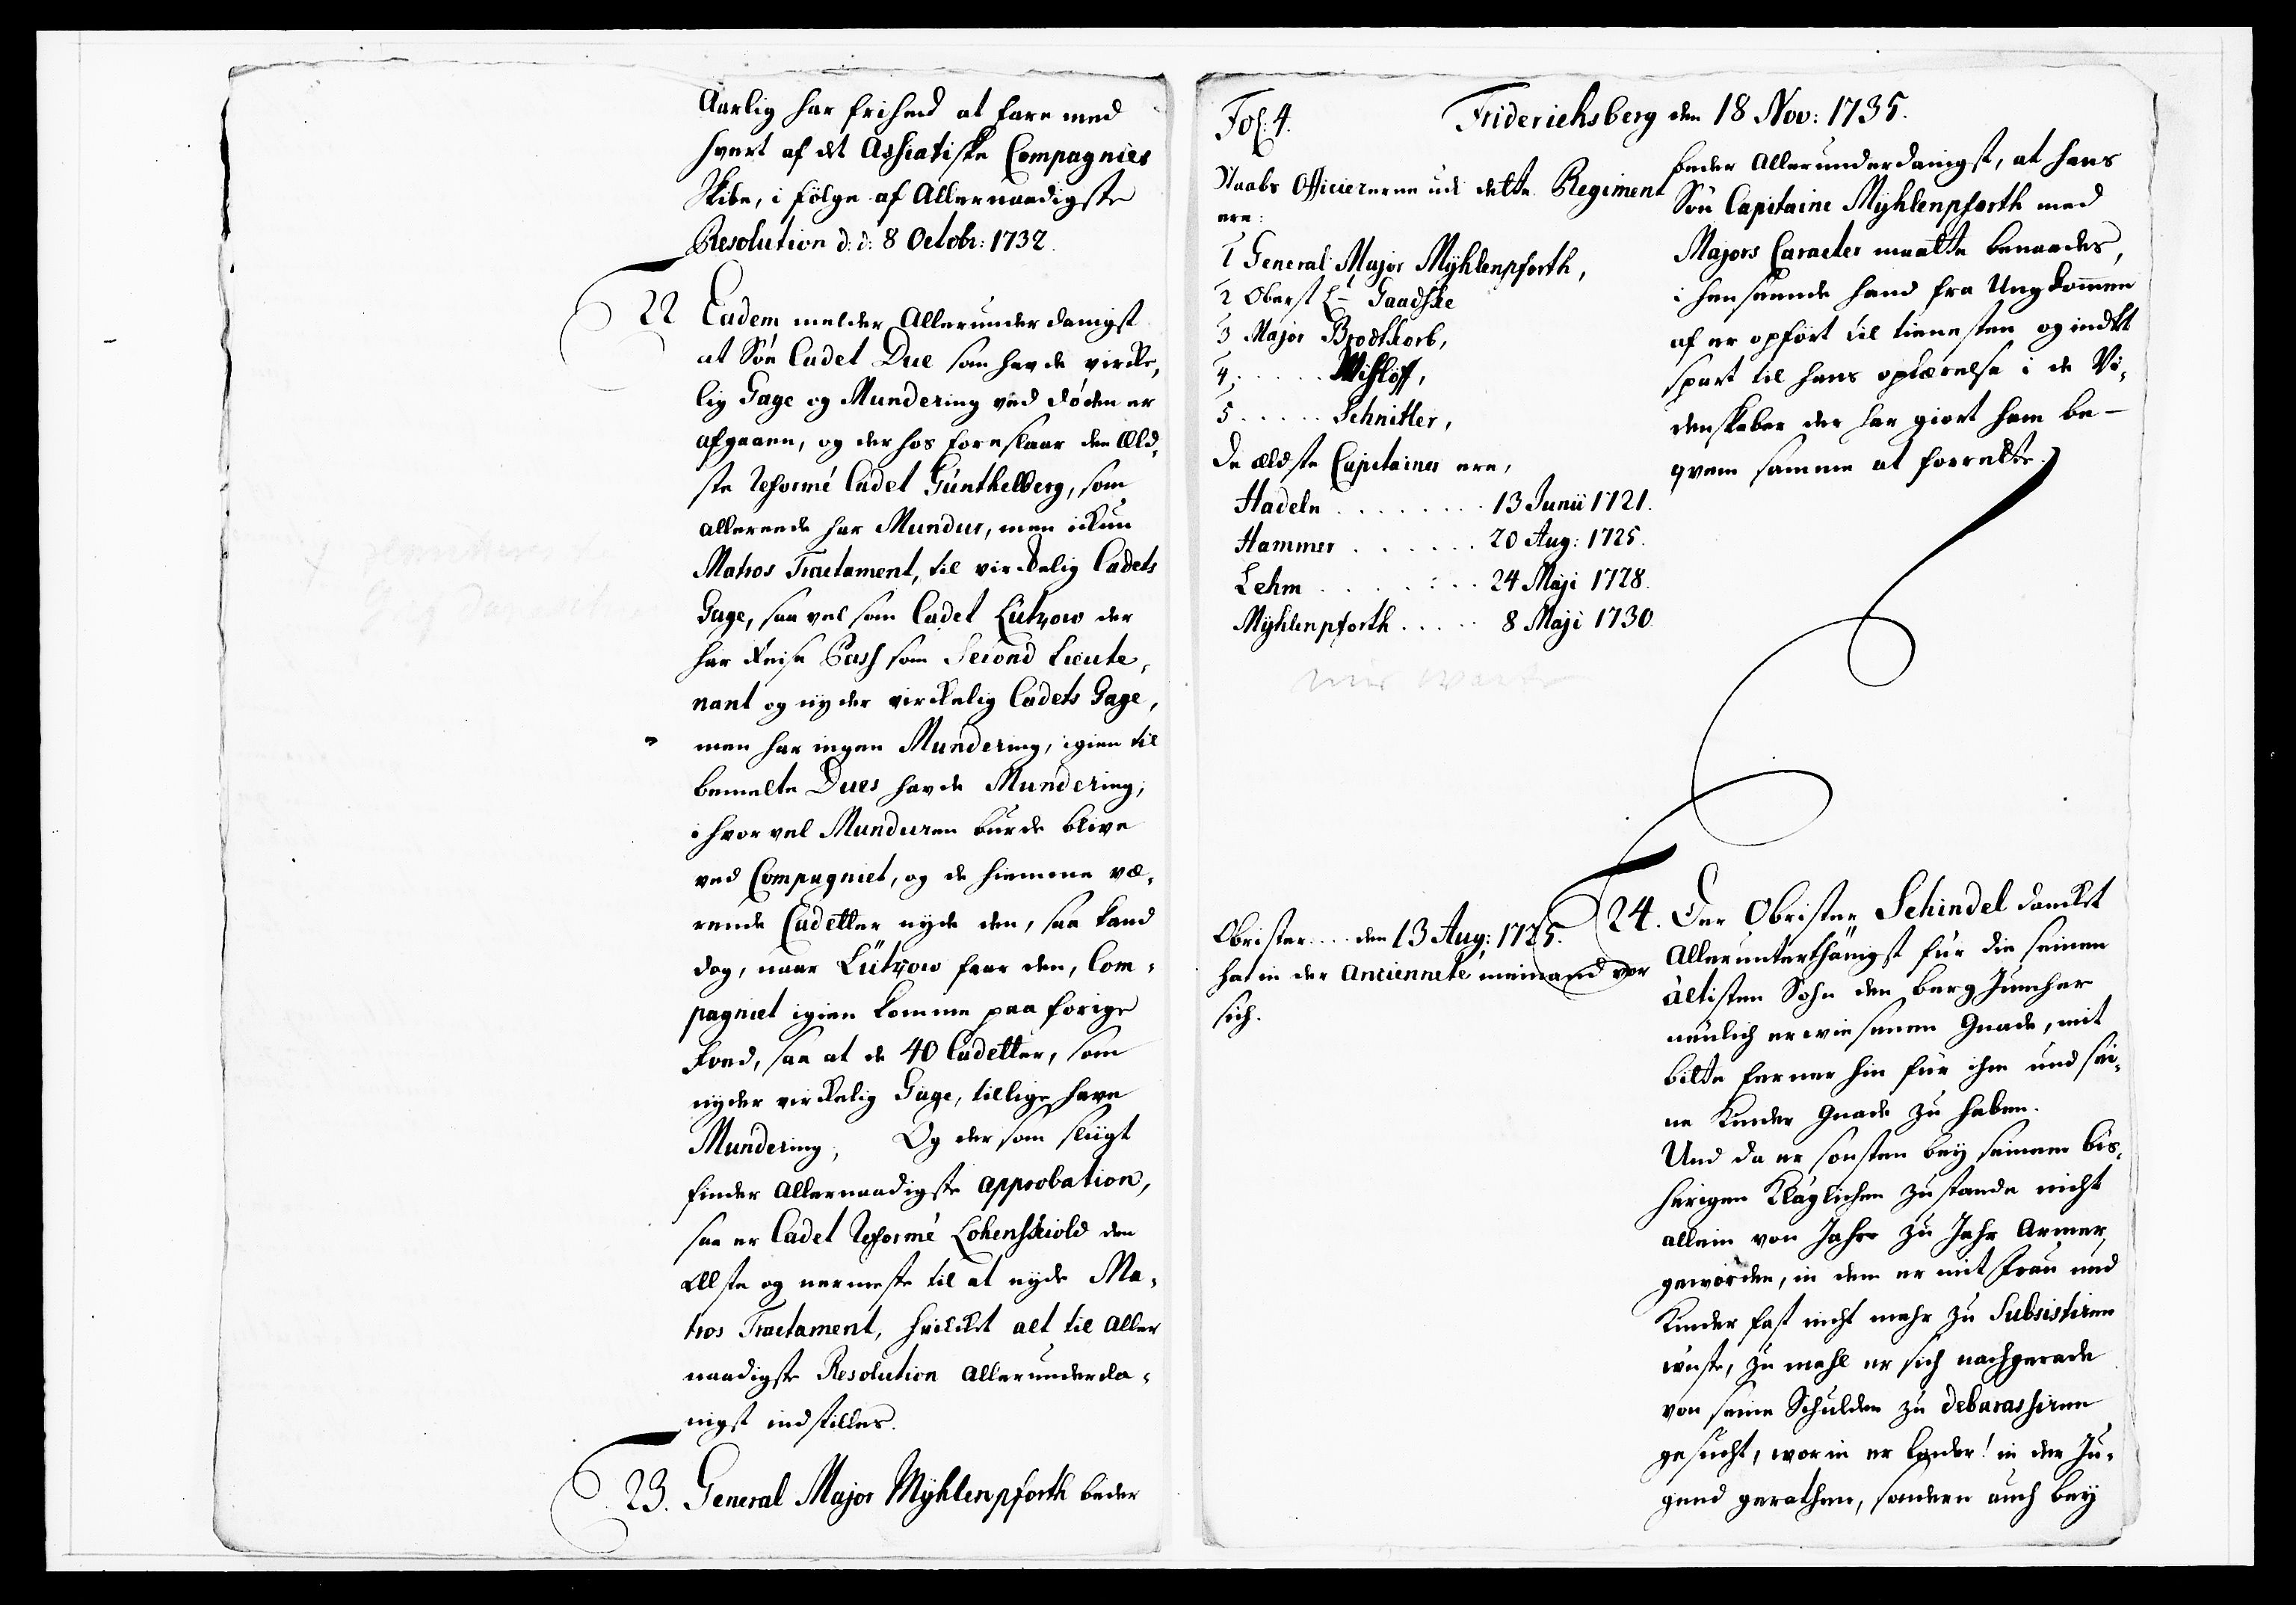 Aarlig har frihed at fare med
hvert af det Assiatiske Compagnies
Skibe, i fölge af Allernaadigste
Resolution d: d: 8 Octobr: 1732.
22 Eadem melder Allerunderdanigst
at Sön Cadet Due som havde virke,
lig Gage og Mundering ved döden er
afgaaen, og der hos foreslaar den Æld,
ste Reformé Cadet Günthelberg, som
allerede har Mundur, men ickun
Matros Tractament, til virkelig Cadets
Gage, saa vel som Cadet Lützow der
har Reise Pass som Second Lieute,
nant og nyder virkelig Cadets Gage,
men har ingen Mundering, igien til
bemelte Dues havde Mundering,
i hvor vel Munduren burde blive
ved Compagniet, og de hiemme væ,
rende Cadetter nyde den, saa kand
dog, naar Lützow faar den, Com,
pagniet igien komme paa forige
Foed, saa at de 40 Cadetter, som
nyder virkelig Gage, tillige have
Mundering, Og der som sligt
finder Allernaadigste approbation,
saa er Cadet Reformé Lohenskiold den
Ælste og nermeste til at nyde Ma,
tros Tractament, hvilket alt til Aller
naadigste Resolution Allerunderda,
nigst indstilles.
23. General Major Mÿhlenpforth beder
Fol: 4. Friderichsberg den 18 Nov: 1735.
Staabs Officiererne udi dette Regiment
ere:
1 General Major Mÿhlenpforth,
2 Oberst Lt Gaadske
3 Major Brodtkorb,
4, . . . . . Wislöff,
5 . . . . . Schnitler,
De ældste Capitainer ere,
Hadeln . . . . . . . . 13 Junii 1721.
Hammer . . . . . . 20 Aug: 1725.
Lehm . . . . . . . 24 Maji 1728.
Mÿhlenpforth . . . . . 8 Maji 1730.
beder Allerunderdanigst, at hans
Sön Capitaine Mÿhlenpforth med
Majors Caracter maatte benaades,
i henseende hand fra Ungdommen
af er opfört til tienesten og indtet
spart til hans oplærelse i de Vi,
denskaber der har giort ham be-
qvem samme at forrette.
Obrister . . . . den 13 Aug: 1725.
hat in der Ancienneté niemand vor
sich.
24. Der Obrister Schindel dancket
Allerunterthänigst für die seinem
ältisten Sohn den berg Juncker
neulich erwiesenen Gnade, mit
bitte ferner hin für ihm und sei,
ne Kinder Gnade zu haben.
Und da er sonsten bey seinem bis,
herigen Kläglichen zustande nicht
allein von Jahr zu Jahr Armer,
geworden, in dem er mit Frau und
Kinder fast nicht mehr zu Subsistiren
wuste, zu mahl er sich nachgerade
von seine Schulden zu debarassiren
gesucht, worin er leyder! in der Ju,
gend gerathen, sondern auch bey